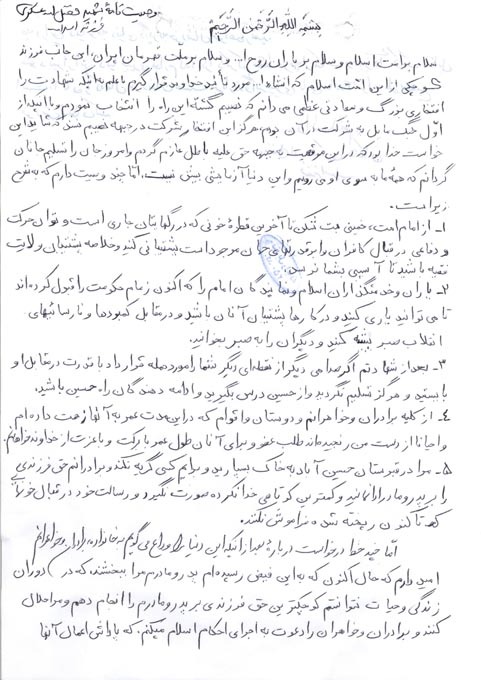 وصیت نامه شهید فضل الله عسکری
بسم الله الرحمن الرحیم
فرزند اسدالله
سلام بر امت اسلام و سلام بر یاران روح ا... و سلام بر ملت قهرمان ایران، این جانب فرزند
کوچکی از این امت اسلام که انشاء ا... مورد تأیید خداوند قرار گیرم با علم به اینکه شهادت را
افتخاری بزرگ و سعادتی عظمی می دانم که نصیبم گشته این راه را انتخاب نمودم و با اینکه از
اول جنگ مایل به شرکت در آن بودم هرگز این افتخار شرکت در جبهه نصیبم نشد که شاید این
خواست خدا بود که در این موقعیت به جبهه حق علیه باطل عازم گردم و امروز جان را تسلیم جانان
گردانم که همه ما به سوی او می رویم و این دنیا آزمایشی بیش نیست. اما چند وصیت دارم که به شرح
زیر است.
۱- از امام امت، خمینی بت شکن تا آخرین قطره خونی که در رگهایتان جاری است و توان حرکت
و دفاعی در قبال کافران و ابرقدرتهای جهان موجود است پشتیبانی کنید و خلاصه پشتیبان ولایت
فقیه باشید تا آسیبی بشما نرسد.
۲- یاران و خدمتگذاران اسلام و نمایندگان امام را که اکنون زمام حکومت را قبول کرده اند
تا می توانید یاری کنید و در کارها پشتیبان آنان باشید و در مقابل کمبودها و نارسائیهای
انقلاب صبر پیشه کنید و دیگران را به صبر بخوانید.
۳- بعد از شهادتم اگر صدامی دیگر از نقطه ای دیگر شما را مورد حمله قرار داد با قدرت در مقابل او
بایستید و هرگز تسلیم نگردید و از حسین درس بگیرید و ادامه دهندگان راه حسین باشید.
۴- از کلیه برادران و خواهرانم و دوستان و اقوام که در این مدت عمر به آنها زحمت داده ام
و احیانا از دست من رنجیده اند طلب عفو و برای آنان طول عمر با برکت و با عزت از خداوند خواهانم.
۵- مرا در قبرستان حسین آباد به خاک بسپارید و برایم کسی گریه نکند و برادرانم حق فرزندی
را بر پدر و مادر ادا نمایند و کمترین کوتاهی خدا نکرده صورت نگیرد و رسالت خود در قبال خونهایی
که تا کنون ریخته شده فراموش نکنند.
اما چند خط درخواست درباره بعد از اینکه این دنیا را وداع می گویم به خانواده، برادران و خواهرانم
امید دارم که حال اکنون که به این فیض رسیده ام پدر و مادرم مرا ببخشند، که در دوران
زندگی و حیات نتوانستم کوچکترین حق فرزندی بر پدر و مادرم را انجام دهم و مرا حلال
کنند و برادران و خواهران را دعوت به اجرای احکام اسلام میکنم. که پاداش اعمال آنها